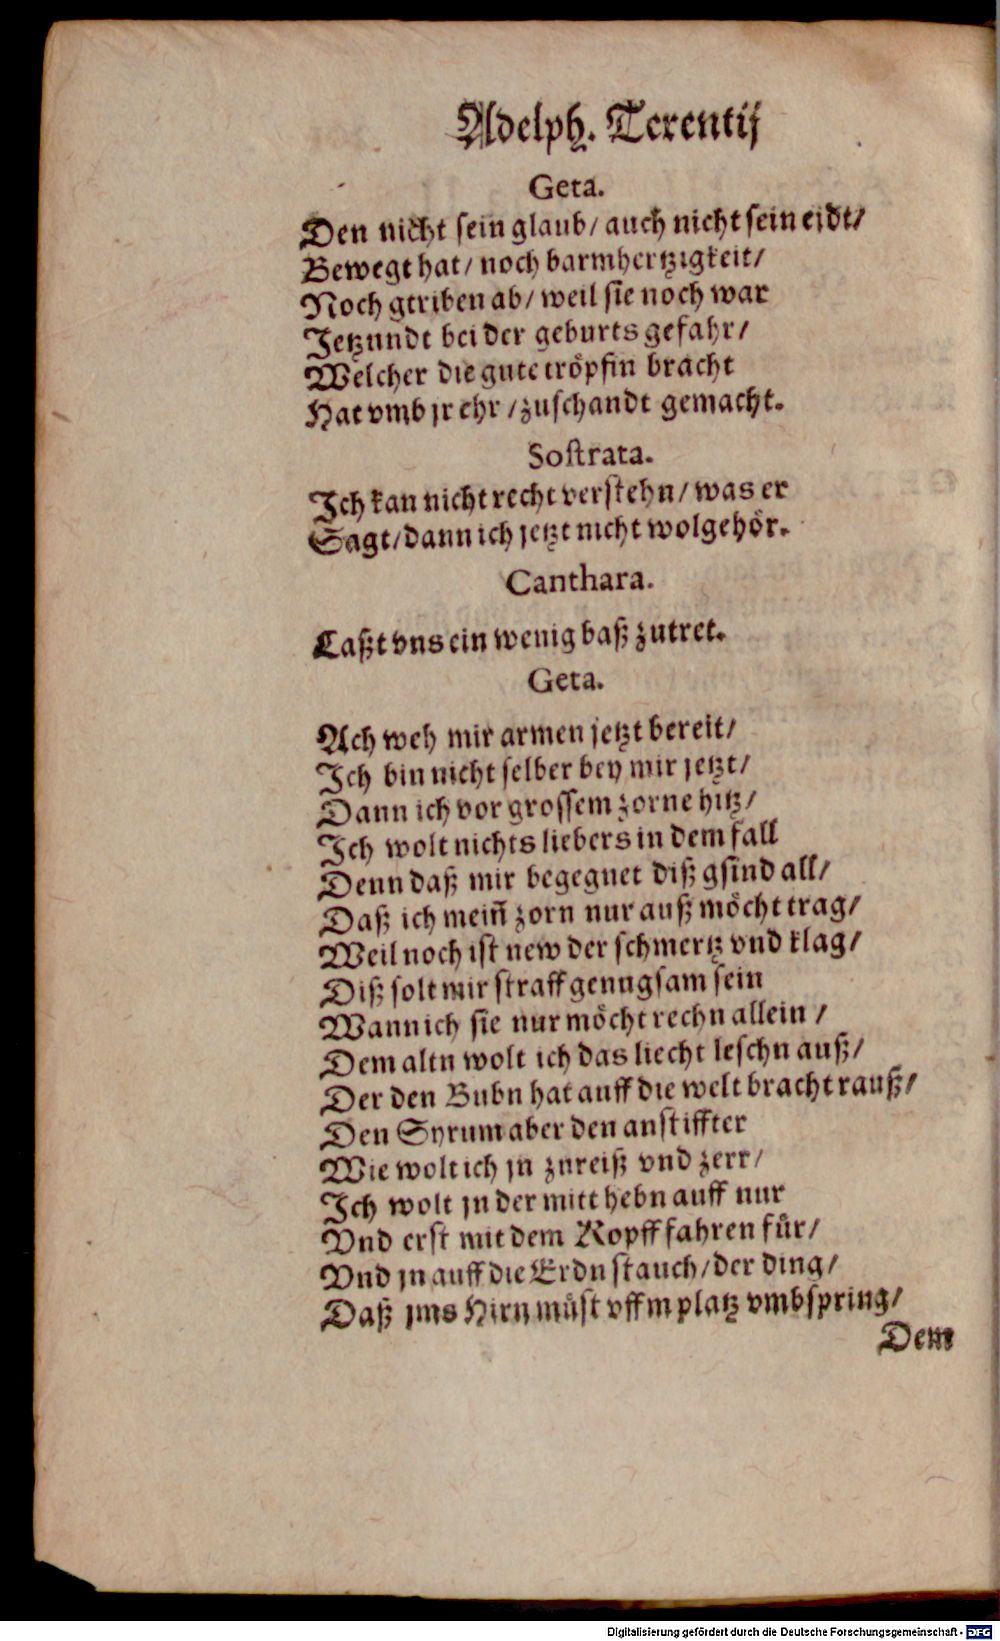 Adelph. Terentij
Geta.
Den nicht sein glaub/ auch nicht sein eidt/
Bewegt hat/ noch barmhertzigkeit/
Noch gtriben ab/ weil sie noch war
Jetzundt bei der geburts gefahr/
Welcher die gute tröpfin bracht
Hat vmb jr ehr/ zuschandt gemacht.
Sostrata.
Ich kan nicht recht verstehn/ was er
Sagt/ dann ich jetzt nicht wolgehör.
Canthara.
Laßt vns ein wenig baß zutret.
Geta.
Ach weh mir armen jetzt bereit/
Ich bin nicht selber bey mir jetzt/
Dann ich vor grossem zorne hitz/
Ich wolt nichts liebers in dem fall
Denn daß mir begegnet diß gsind all/
Daß ich mein̄ zorn nur auß möcht trag/
Weil noch ist new der schmertz vnd klag/
Diß solt mir straff genugsam sein
Wann ich sie nur möcht rechn allein /
Dem altn wolt ich das liecht leschn auß/
Der den Bubn hat auff die welt bracht rauß/
Den Syrum aber den anstiffter
Wie wolt ich jn zureiß vnd zerr/
Ich wolt jn der mitt hebn auff nur
Vnd erst mit dem Kopff fahren für/
Vnd jn auff die Erdn stauch/ der ding/
Daß jms Hirn müst vffm platz vmbspring/
Dem
Digitalisierung gefördert durch die Deutsche Forschungsgemeinschaft - DFG